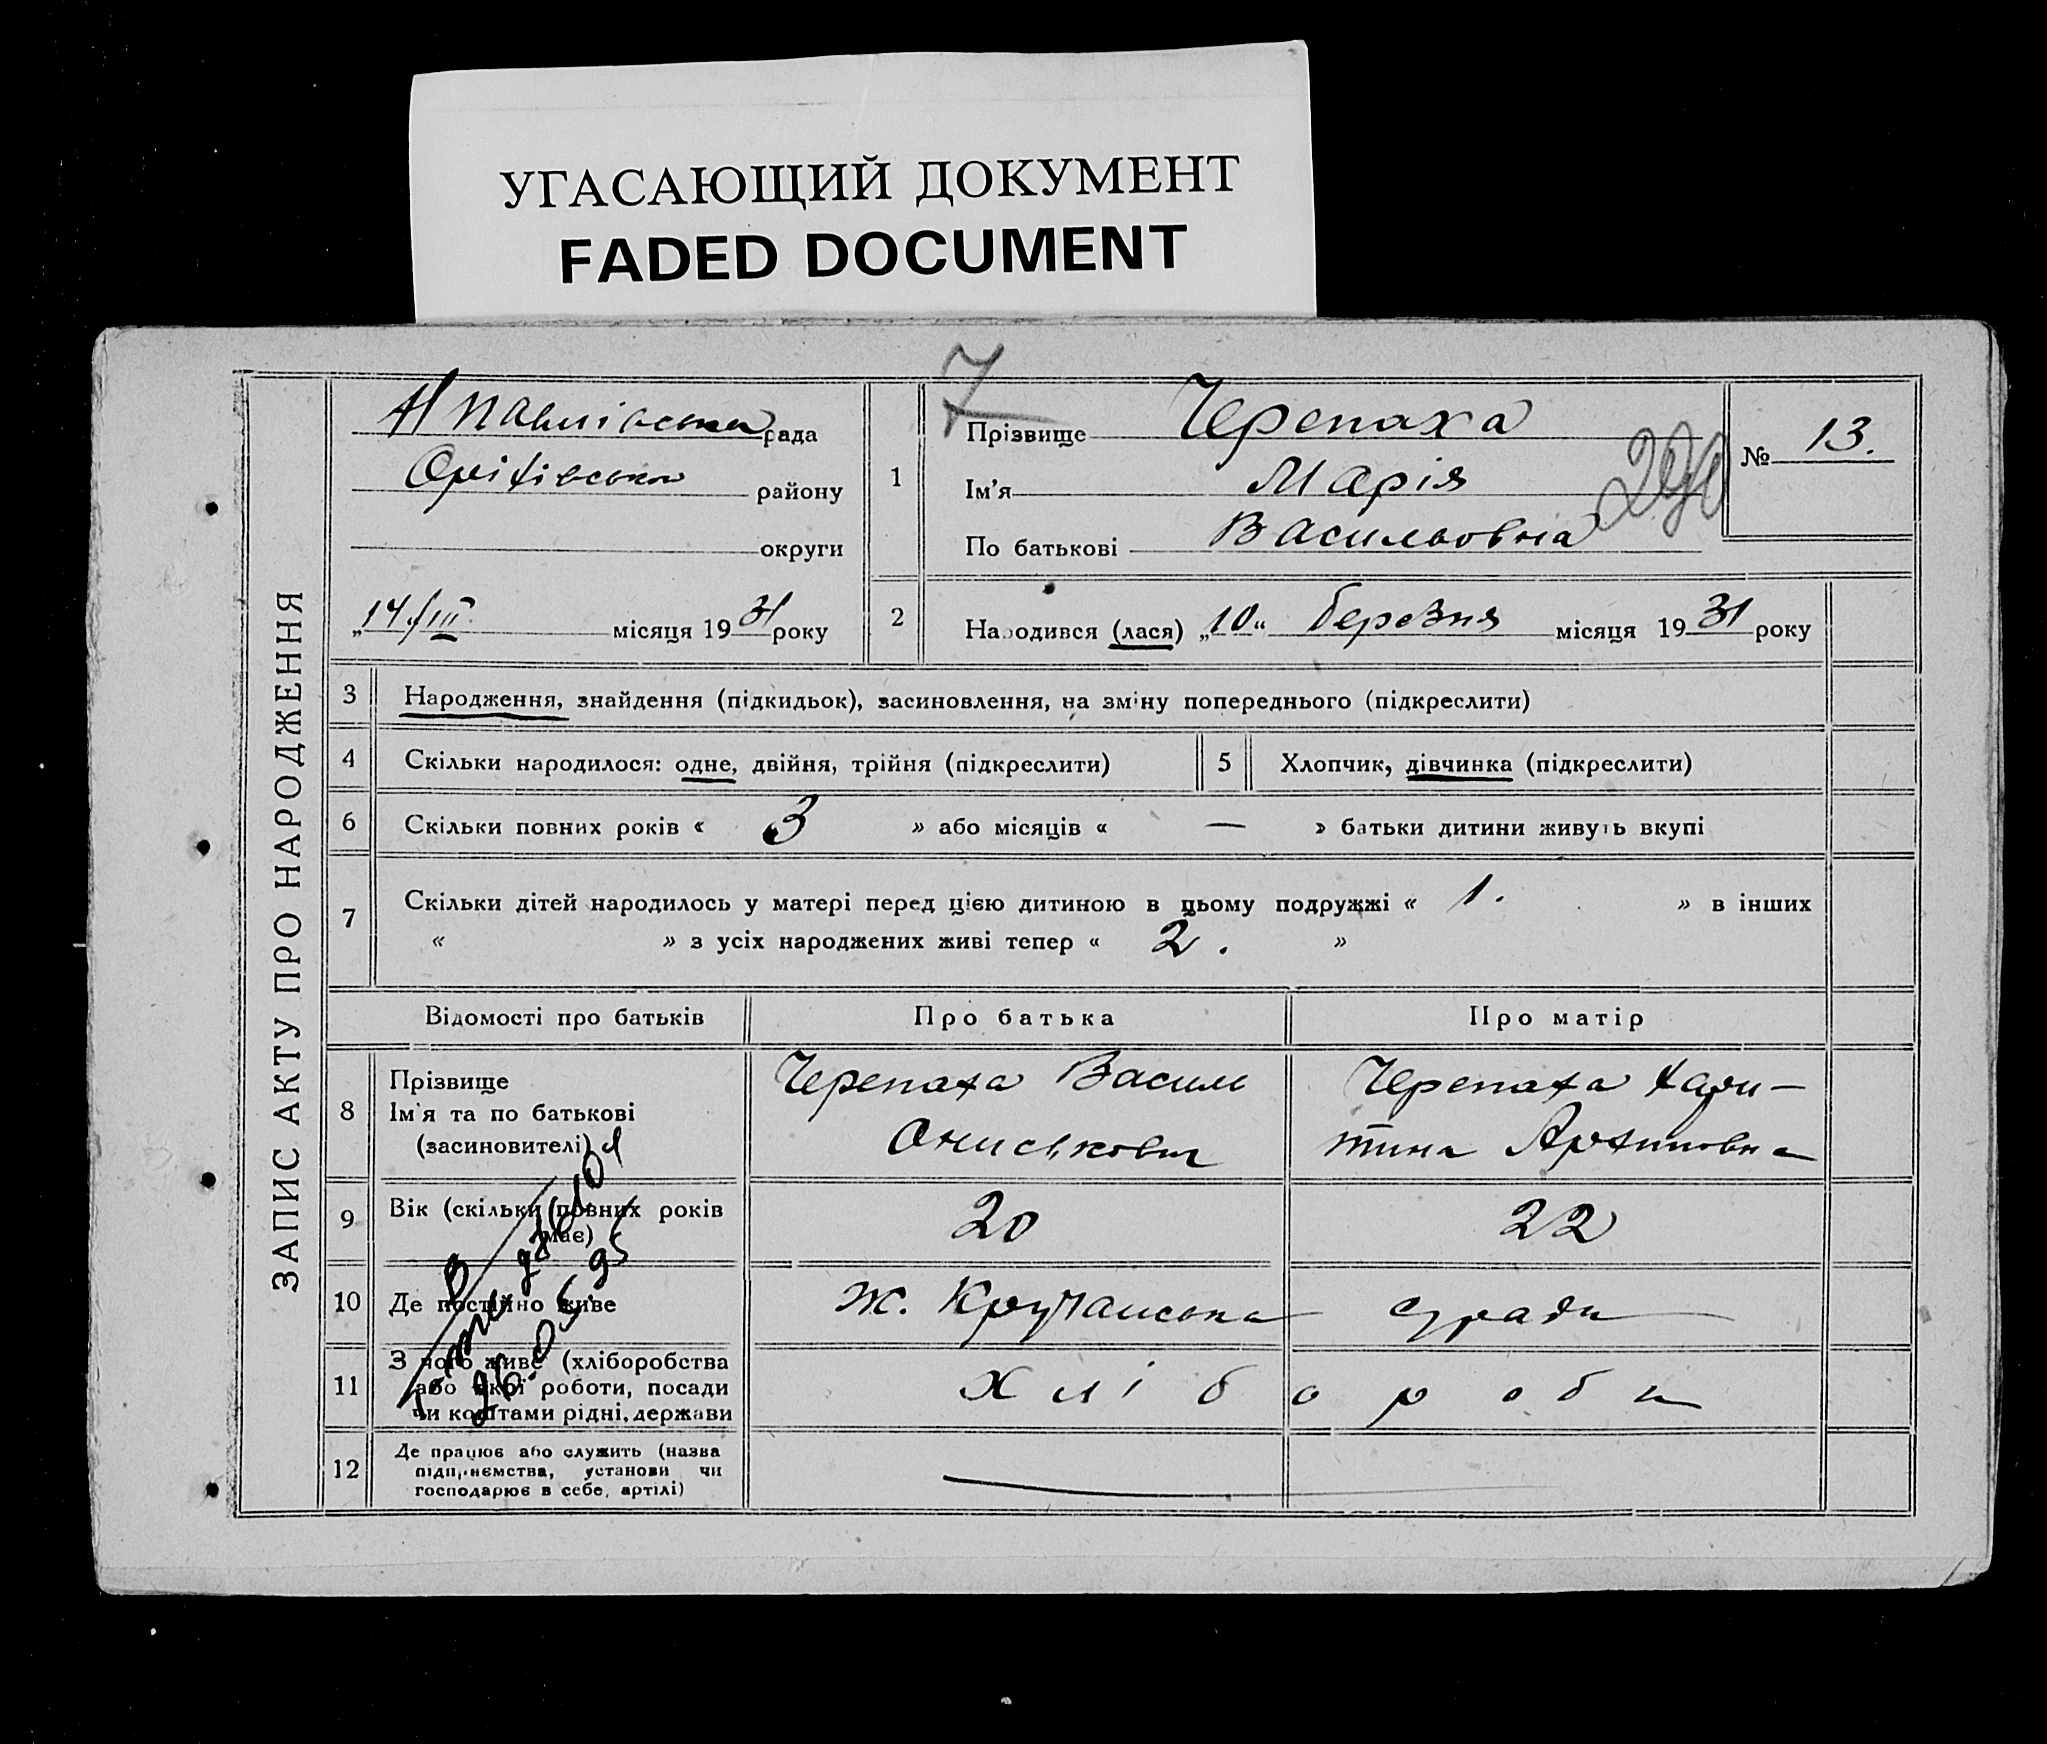 УГАСАЮЩИЙ ДОКУМЕНТ
FADED DOCUMENT
ЗАПИС АКТУ ПРО НАРОДЖЕННЯ
Н Павлівська рада
Оріхівського району
округи
„14/III місяця 1931 року
7
1
Прізвище Черепаха
Ім'я Марія
По батькові Васильовна
№ 13.
290
2
Народився (лася) „10“ березня місяця 1931 року
3 Народження, знайдення (підкидьок), засиновлення, на зміну попереднього (підкреслити)
4 Скільки народилося: одне, двійня, трійня (підкреслити)
5 Хлопчик, дівчинка (підкреслити)
6 Скільки повних років « 3 » або місяців « — » батьки дитини живуть вкупі
7 Скільки дітей народилось у матері перед цією дитиною в цьому подружжі « 1. » в інших
« » з усіх народжених живі тепер « 2. »
Відомості про батьків Про батька Про матір
8 Прізвище
Ім'я та по батькові
(засиновителі)
Черепаха Василь
Ониськович
Черепаха Хари-
тина Архиповна
9 Вік (скільки повних років
має)
20 22
10 Де постійно живе
ж. Кручанська с/ради
11 З чого живе (хліборобства
або якої роботи, посади
чи коштами рідні, держави
Хлібороби
12 Де працює або служить (назва
підприємства, установи чи
господарює в себе, артілі)